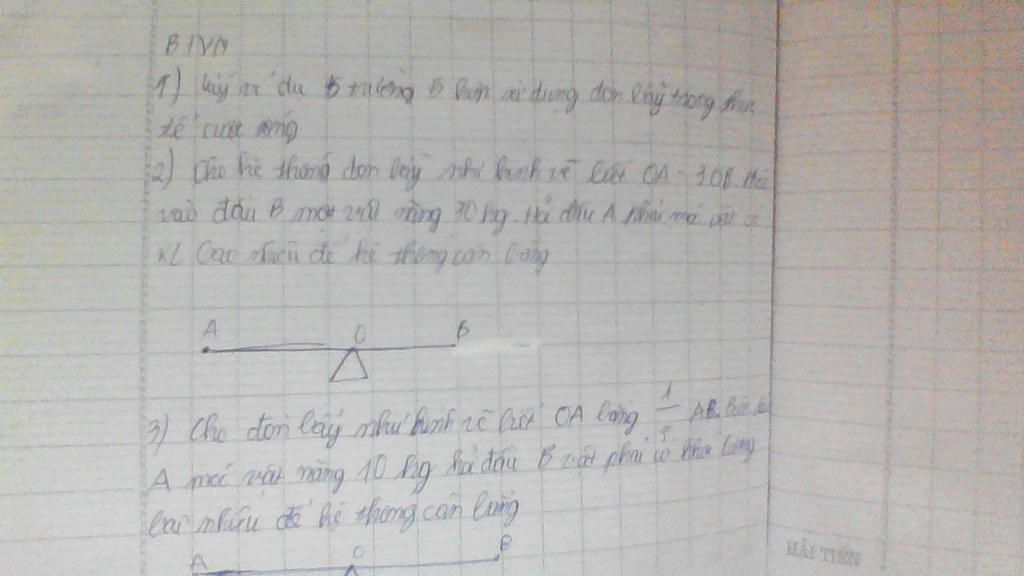 BTVN
1) Lấy ví dụ 5 trường 5 bạn sử dụng đòn bẩy trong thực
tế cuộc sống
2) Cho hệ thống đòn bẩy như hình vẽ biết OA = 3.OB Móc
vào đầu B một vật nặng 30 kg. Hỏi đầu A phải móc vật có
KL bao nhiêu để hệ thống cân bằng
A O B
3) Cho đòn bẩy như hình vẽ biết OA bằng AB. Biết đầu
A móc vật nặng 10 kg hỏi đầu B vật phải có khối lượng
bao nhiêu để hệ thống cân bằng
A O B
HẢI TIẾN